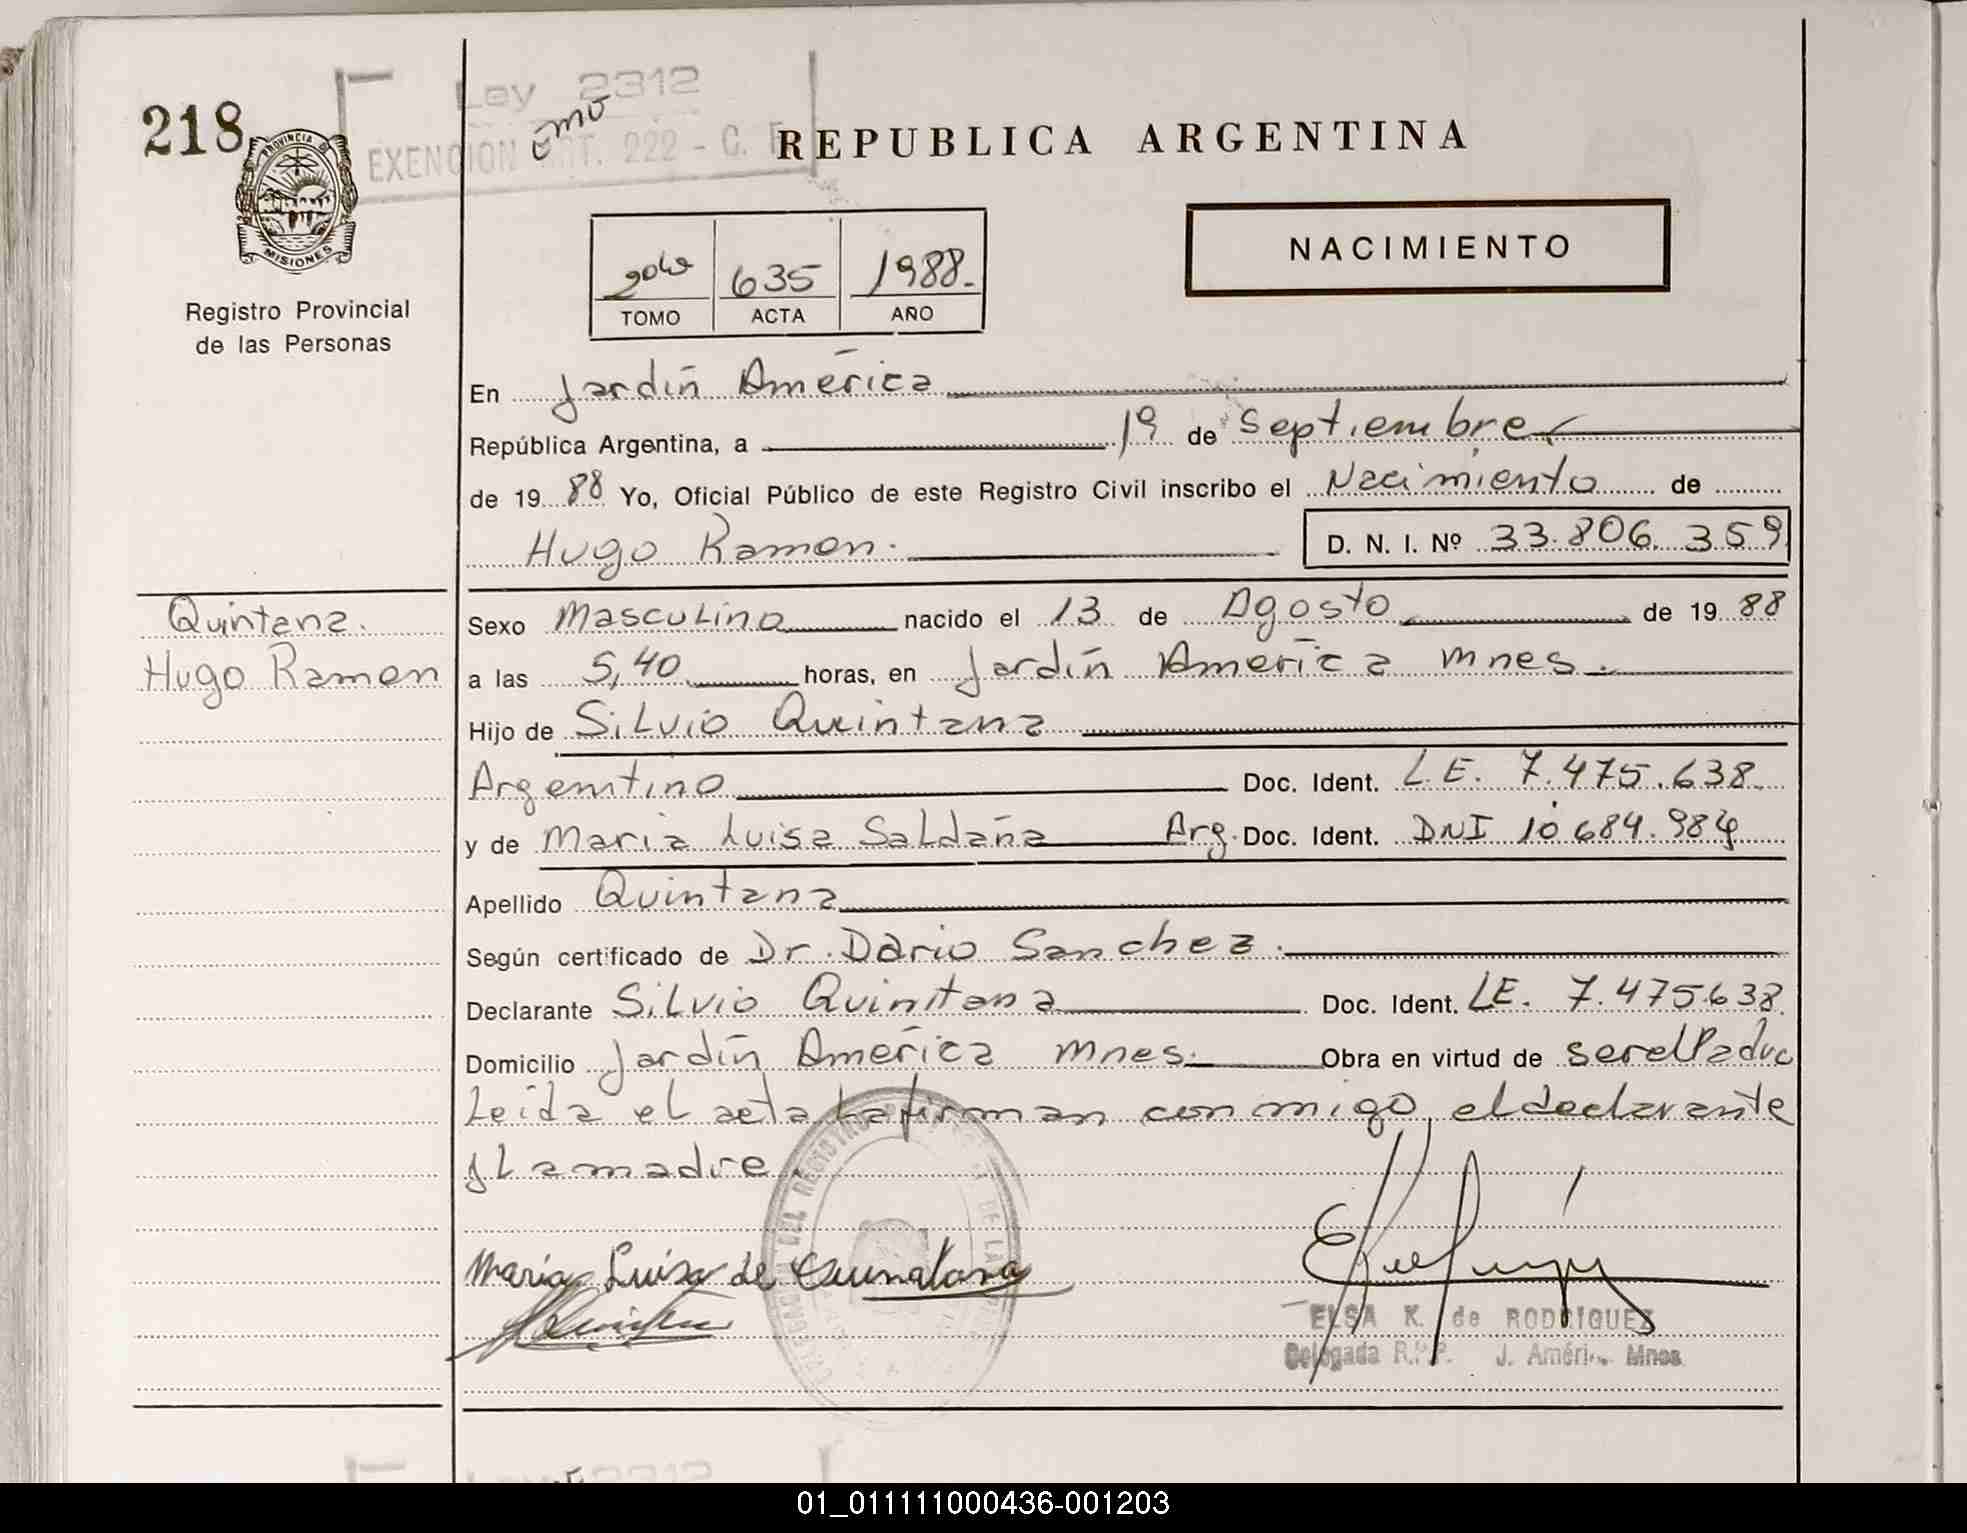 218
Ley 2312
EXENCION ART. 222 - C. F.
REPUBLICA ARGENTINA
PROVINCIA DE
MISIONES
NACIMIENTO
Registro Provincial
de las Personas
2do 635 1988.
TOMO ACTA AÑO
En Jardin América
República Argentina, a 19 de septiembre
de 19 88 Yo, Oficial Público de este Registro Civil inscribo el Nacimiento de
Hugo Ramon. D. N. I. Nº 33.806.359
Quintana.
Hugo Ramon
Sexo Masculino nacido el 13 de Agosto de 19 88
a las 5,40 horas, en Jardín America mnes.
Hijo de Silvio Quintana
Argentino Doc. Ident. L.E. 7.475.638
y de Maria Luisa Saldaña Arg. Doc. Ident. DNI 10.684.984
Apellido Quintana
Según certificado de Dr. Dario Sanchez.
Declarante Silvio Quintana Doc. Ident. LE. 7.475.638
Domicilio Jardín América mnes. Obra en virtud de ser el Padre
Leida el acta la firman conmigo el declarante
y La madre
Maria Luisa de Quinatana
ELSA K. de RODRIGUEZ
Delegada R.P.P. J. Améri. Mnes
Ley 2312
01_011111000436-001203